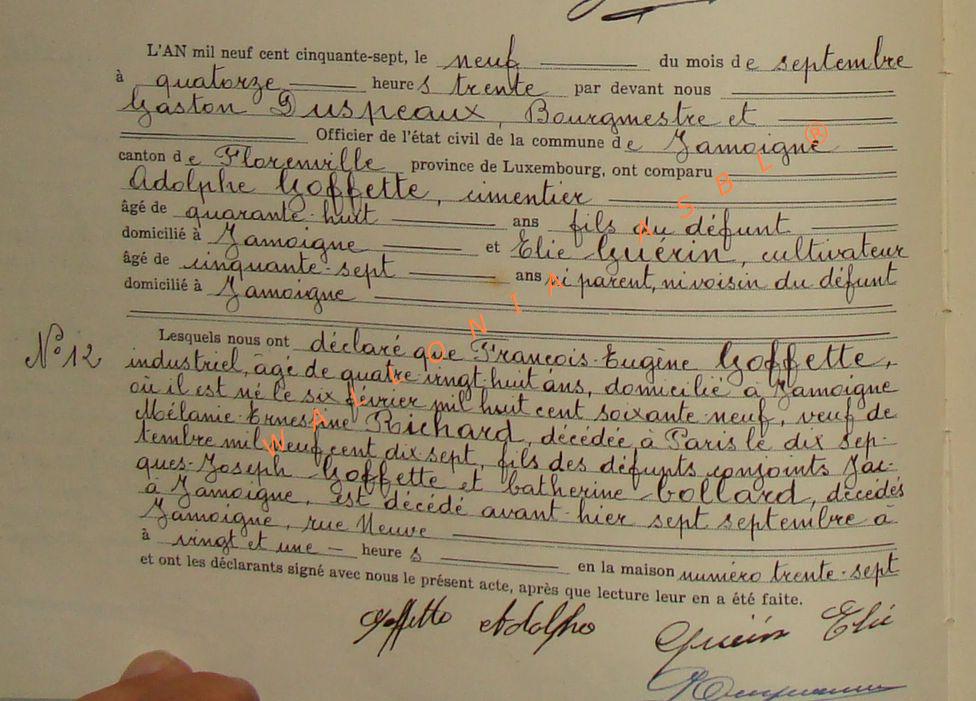 L'AN mil neuf cent cinquante-sept, le neuf du mois de septembre
à quatorze heures trente par devant nous
Gaston Duspeaux, Bourgmestre et
Officier de l'état civil de la commune de Jamoigne
canton de Florenville province de Luxembourg, ont comparu
Adolphe Goffette, cimentier
âgé de quarante-huit ans fils du défunt
domicilié à Jamoigne et Elie Guérin, cultivateur
âgé de cinquante-sept ans ni parent, ni voisin du défunt
domicilié à Jamoigne
N° 12
Lesquels nous ont déclaré que François-Eugène Goffette,
industriel, âgé de quatre-vingt-huit ans, domicilié à Jamoigne
où il est né le six février mil huit cent soixante-neuf, veuf de
Mélanie-Ernestine Richard, décédée à Paris le dix sep-
tembre mil neuf cent dix-sept, fils des défunts conjoints Jac-
ques-Joseph Goffette et Catherine Collard, décédés
à Jamoigne, est décédé avant-hier sept septembre à
Jamoigne, rue Neuve
à vingt et une heures en la maison numéro trente-sept
et ont les déclarants signé avec nous le présent acte, après que lecture leur en a été faite.
Goffette Adolphe
Guérin Elie
WALLONIA ASBL ®